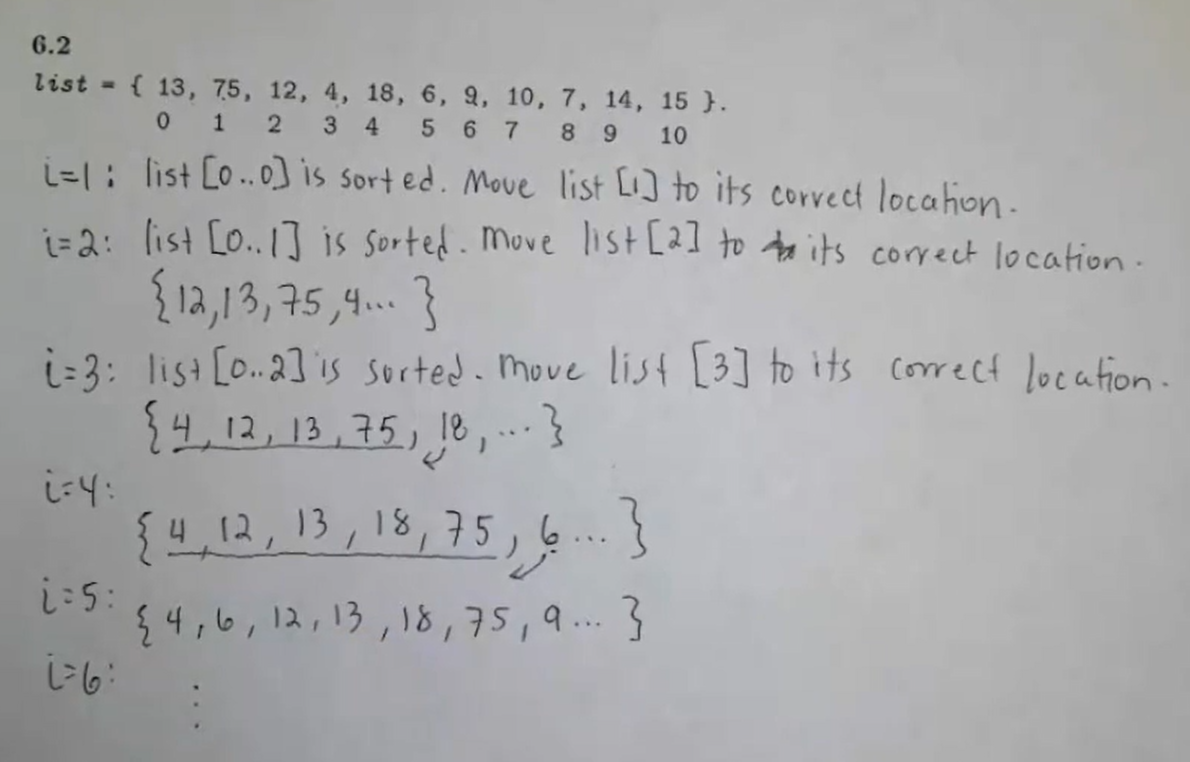 6.2
list = { 13, 75, 12, 4, 18, 6, 9, 10, 7, 14, 15 }.
0 1 2 3 4 5 6 7 8 9 10
i=1: list [0..0] is sorted. Move list [1] to its correct location.
i=2: list [0..1] is sorted. Move list [2] to its correct location.
{12,13,75,4... }
i=3: list [0..2] is sorted. Move list [3] to its correct location.
{4, 12, 13, 75, 18, ... }
i=4:
{4, 12, 13, 18, 75, 6 ... }
i=5:
{4, 6, 12, 13, 18, 75, 9 ... }
i=6:
⋮